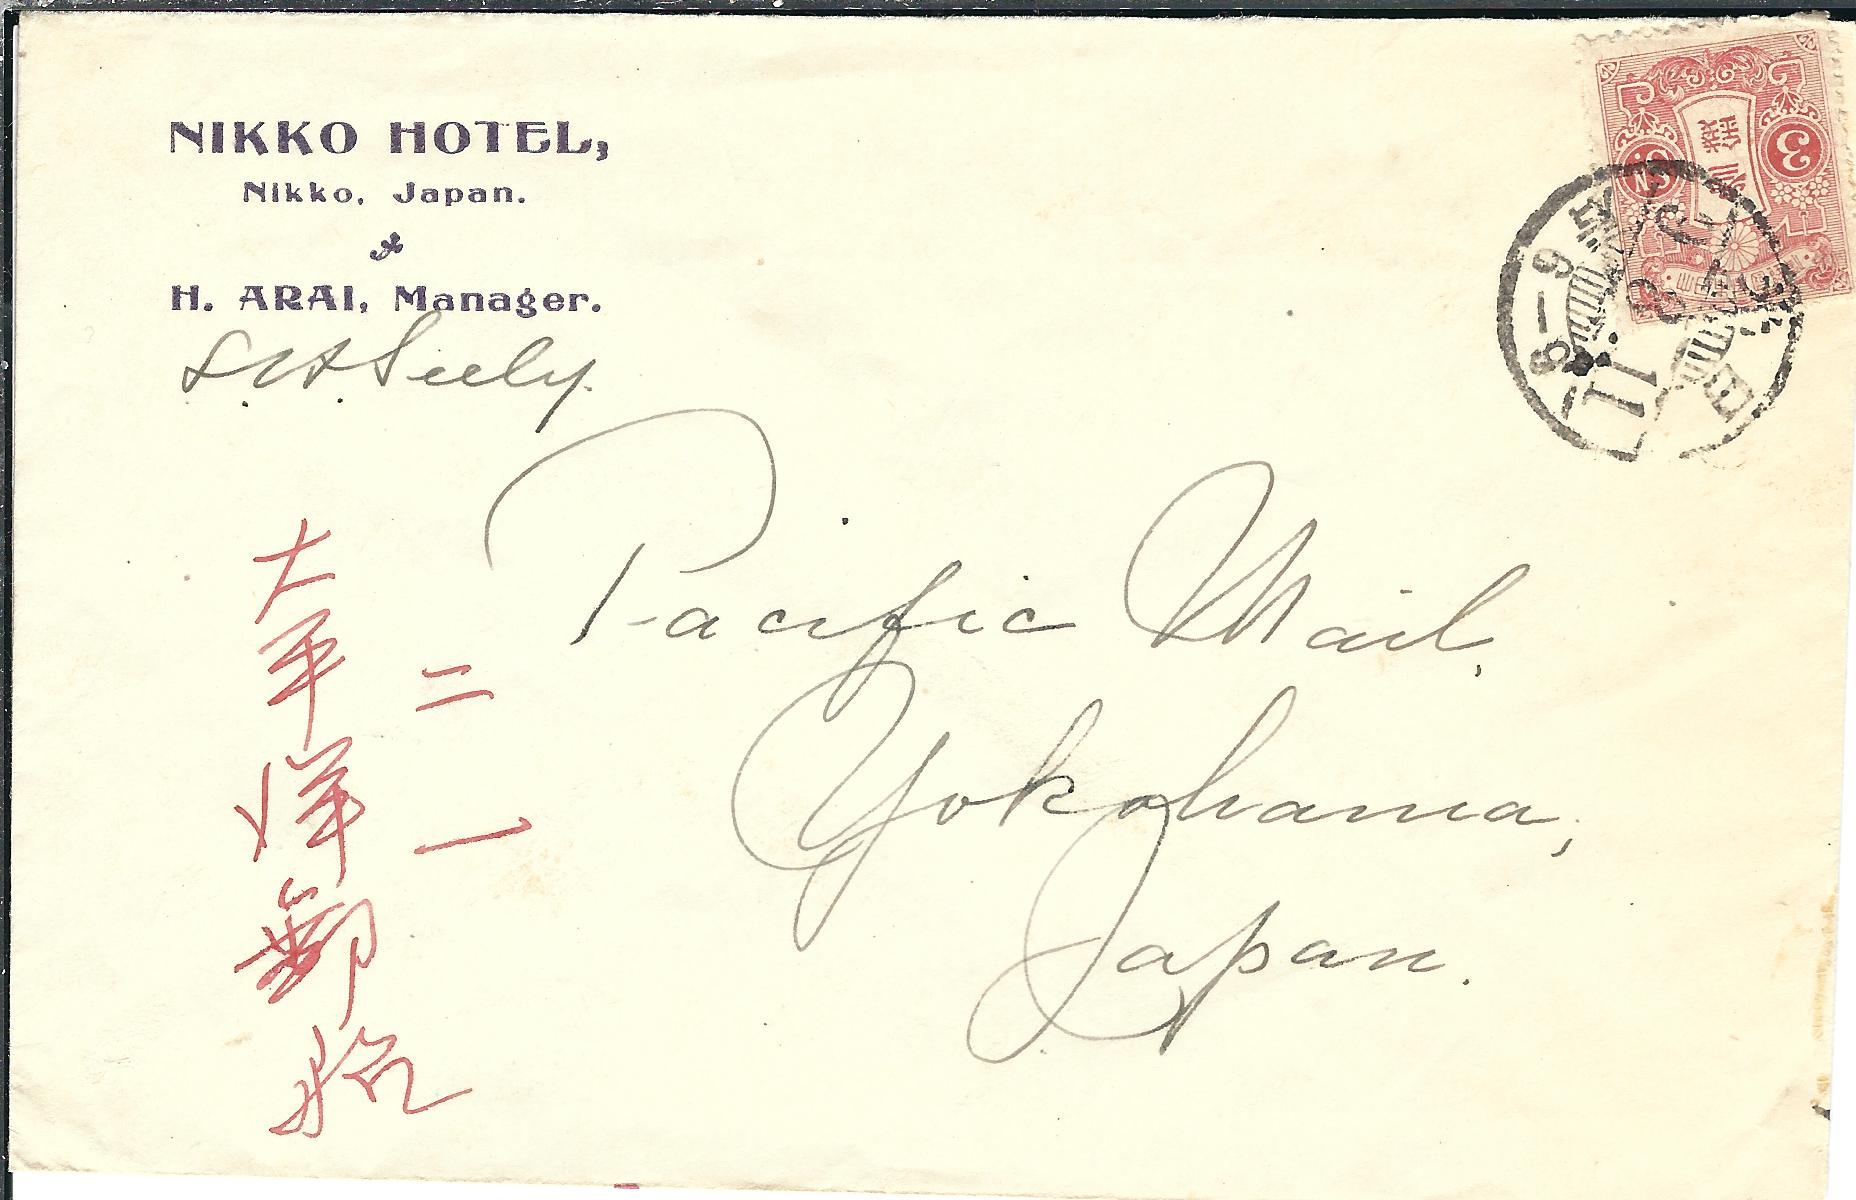 NIKKO HOTEL,
Nikko, Japan.
H. ARAI, Manager.
Seely.
Pacific Mail,
Yokohama,
Japan.
二一
大平洋郵船
3
3 Sn
11
8–9